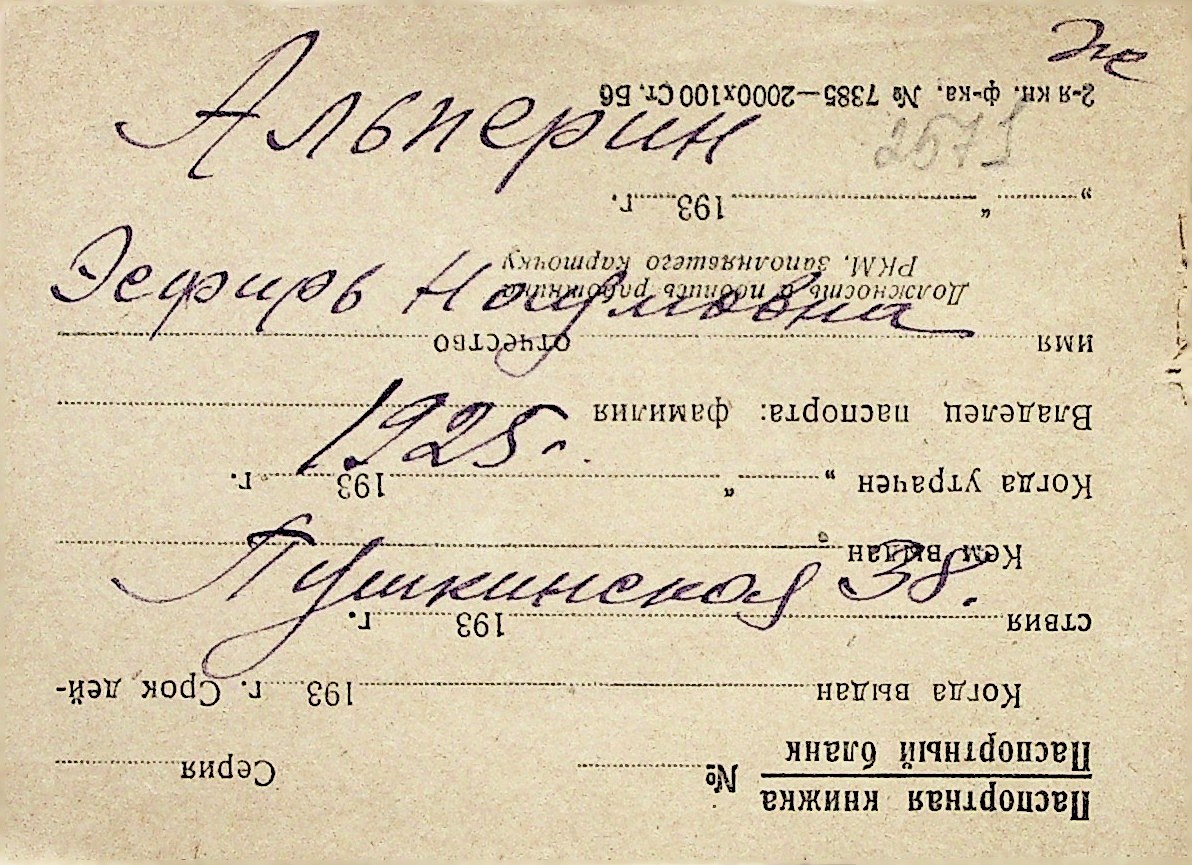 Же
Альперин
2571
Эсфирь Наумовна
1925.
Пушкинская 38.
Паспортная книжка
Паспортный бланк
№ Серия
Когда выдан 193 г. Срок дей-
ствия 193 г.
Кем выдан
Когда утрачен „ “ 193 г.
Владелец паспорта: фамилия
имя отчество
Должность и подпись работника
РКМ, заполнявшего карточку
„ “ 193 г.
2-я кн. ф-ка. № 7385—2000х100 Ст. Б6